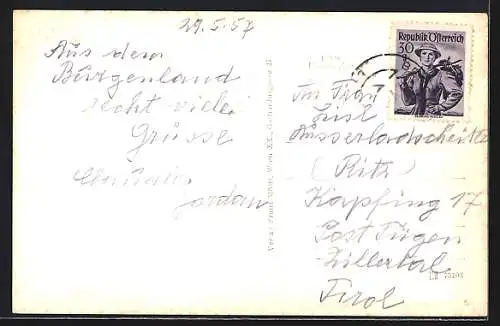 29.5.57
Aus dem
Burgenland
recht viele
Grüsse
Jordan
Republik Österreich
30
An Frau
Lisl
Ausserladscheider
(Ritz)
Kapfing 17
Post Fügen
Zillertal
Tirol